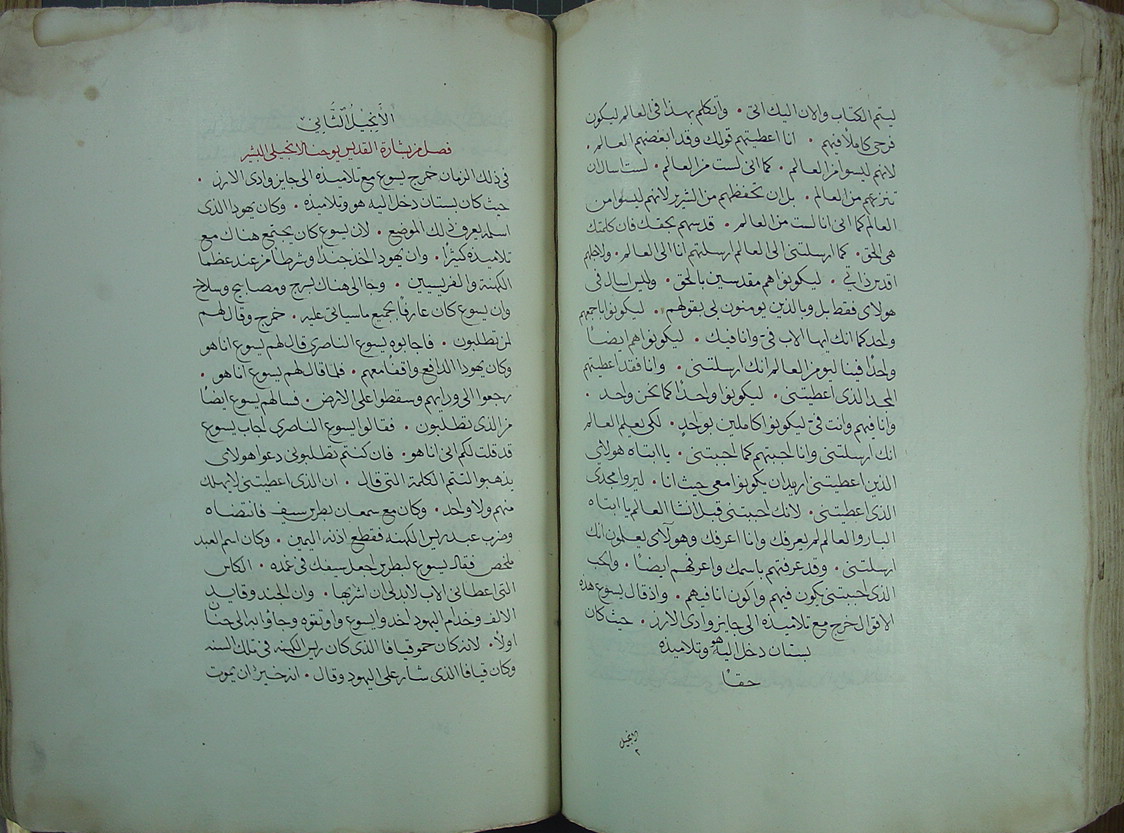 ليتم الكتاب والان اليك اتى • واتكلم بهذا فى العالم ليكون
فرحى كاملا فيهم • انا اعطيتهم قولك وقد ابغضهم العالم •
لانهم ليسوا من العالم • كما انى لست من العالم • لست اسال ان
تنزعهم من العالم • بل ان تحفظهم من الشرير لانهم ليسوا من
العالم كما انى انا لست من العالم • قدسهم بحقك فان كلمتك
هى الحق • كما ارسلتنى الى العالم ارسلتهم انا الى العالم • ولاجلهم
اقدس ذاتى • ليكونوا هم مقدسين بالحق • وليس اسال فى
هولاى فقط بل وبالذين يومنون بى بقولهم • ليكونوا باجمعهم
واحد كما انك ايها الاب فىّ وانا فيك • ليكونوا هم ايضًا
واحدًا فينا ليومن العالم انك ارسلتنى • وانا فقد اعطيتهم
المجد الذى اعطيتنى • ليكونوا واحدًا كما نحن واحد •
وانا فيهم وانت فىّ ليكونوا كاملين بواحدٍ • لكى يعلم العالم
انك ارسلتنى وانا احببتهم كما احببتنى • يا ابتاه هولاى
الذين اعطيتنى اريد ان يكونوا معى حيث انا • ليروا مجدى
الذى اعطيتنى • لانك احببتنى قبل انشا العالم يا ابتاه
البار والعالم لم يعرفك وانا اعرفك وهولاى يعلمون انك
ارسلتنى • وقد عرفتهم باسمك واعرفهم ايضًا • والحب
الذى احببتنى يكون فيهم واكون انا فيهم • واذ قال يسوع هذه
الاقوال خرج مع تلاميذه الى جايز وادى الارز • حيث كان
بستان دخل اليه هو وتلاميذه
حقًا
الانجيل
٢
الأنجيل الثاني
فصل من بشارة القديس يوحنا الانجيلى البشير
فى ذلك الزمان خرج يسوع مع تلاميذه الى جايز وادى الارز •
حيث كان بستان دخل اليه هو وتلاميذه • وكان يهودا الذى
اسلمه يعرف ذلك الموضع • لان يسوع كان يجتمع هناك مع
تلاميذه كثيرًا • وان يهودا اخذ جندًا وشرطًا من عند عظما
الكهنة والفريسيين • وجا الى هناك بسرج ومصابيح وسلاح
وان يسوع كان عارفًا بجميع ما سياتى عليه • خرج وقال لهم
لمن تطلبون • فاجابوه يسوع الناصرى قال لهم يسوع انا هو
وكان يهودا الدافع واقفًا معهم • فلما قال لهم يسوع انا هو •
رجعوا الى ورايهم وسقطوا على الارض • فسالهم يسوع ايضًا
من الذى تطلبون • فقالوا يسوع الناصرى اجاب يسوع
قد قلت لكم انى انا هو • فان كنتم تطلبونى دعوا هولاى
يذهبوا لتتم الكلمة التى قال • ان الذى اعطيتنى لا يهلك
منهم ولا واحد • وكان مع سمعان بطرس سيف فانتضاه
وضرب عبد ريس الكهنه فقطع اذنه اليمين • وكان اسم العبد
ملخص فقال يسوع لبطرس اجعل سيفك فى غمده • الكاس
التى اعطانى الاب لابد لى ان اشربها • وان الجند وقايد
الالف وخدام اليهود اخدوا يسوع واوثقوه وجاؤا به الى حنان
اولًا • لانه كان حمو قيافا الذى كان ريس الكهنه فى تلك السنه
وكان قيافا الذى شار على اليهود وقال • انه خير ان يموت